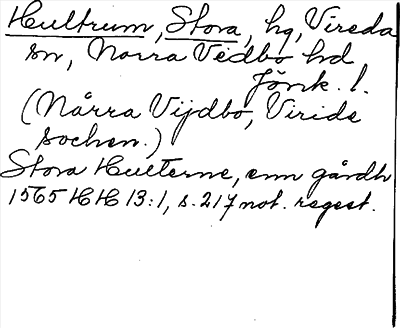 Hultrum, Stora, hg, Vireda
sn, Norra Vedbo hd
Jönk. l.
(Nårra Vijdbo, Viride
sochen.)
Stora Hulterne, enn gårdh
1565 HH 13:1, s. 217 not. regest.